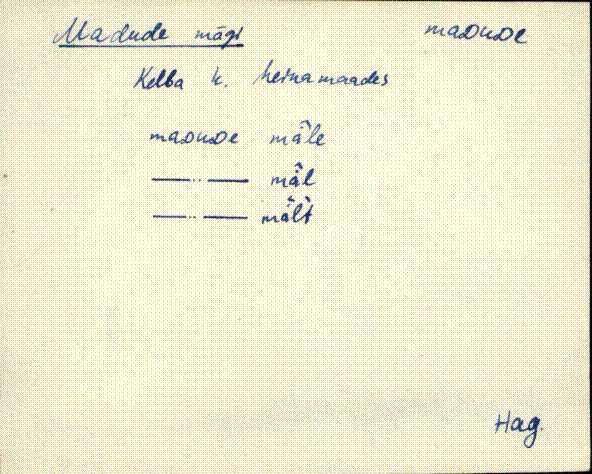 Madude mägi maᴅuᴅe
Kelba k. heinamaades
maᴅuᴅe mä̀le
—..— mä̂l
—..— mä̀lt
Hag.